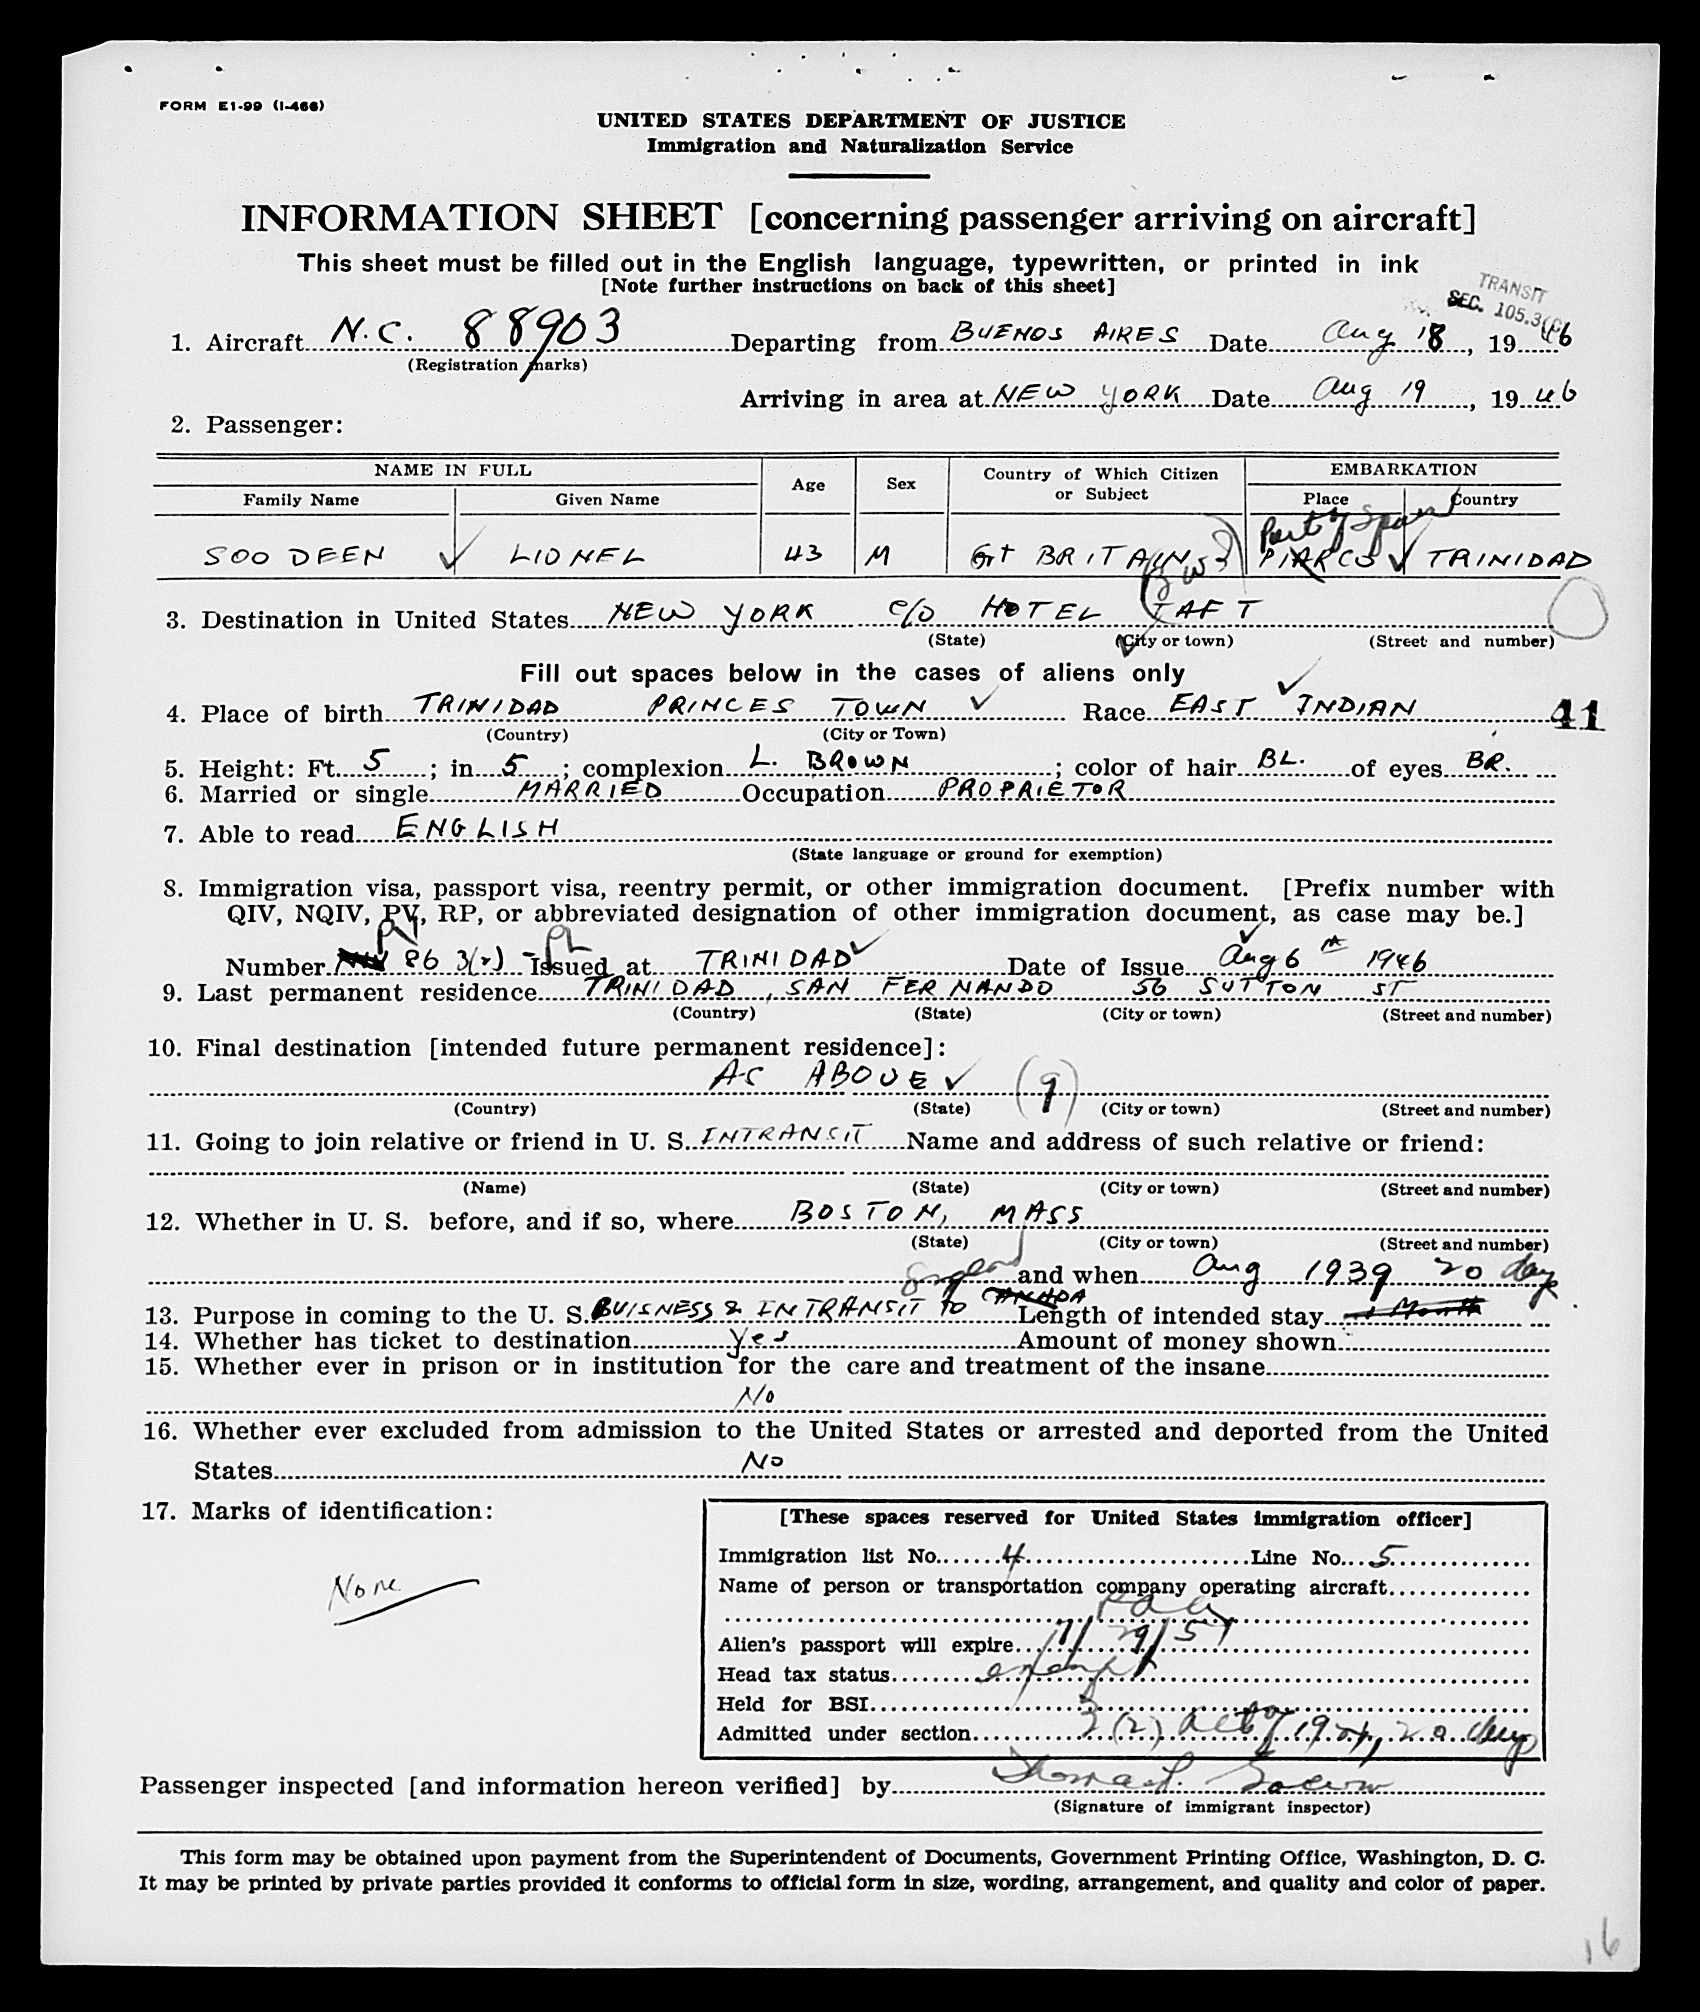 FORM E1-99 (I-466)
UNITED STATES DEPARTMENT OF JUSTICE
Immigration and Naturalization Service
INFORMATION SHEET [concerning passenger arriving on aircraft]
This sheet must be filled out in the English language, typewritten, or printed in ink
[Note further instructions on back of this sheet]
TRANSIT
SEC. 105.3
1. Aircraft N.C. 88903 Departing from BUENOS AIRES Date Aug 18, 1946
(Registration marks)
Arriving in area at NEW YORK Date Aug 19, 1946
2. Passenger:
NAME IN FULL Age Sex Country of Which Citizen or Subject EMBARKATION
Family Name Given Name Place Country
Port of Spain
SOODEEN LIONEL 43 M Gt BRITAIN PIARCO TRINIDAD
BWI
3. Destination in United States NEW YORK c/o HOTEL TAFT
(State) (City or town) (Street and number)
Fill out spaces below in the cases of aliens only
4. Place of birth TRINIDAD PRINCES TOWN Race EAST INDIAN 41
(Country) (City or Town)
5. Height: Ft. 5; in. 5; complexion L. BROWN; color of hair BL. of eyes BR.
6. Married or single MARRIED Occupation PROPRIETOR
7. Able to read ENGLISH
(State language or ground for exemption)
8. Immigration visa, passport visa, reentry permit, or other immigration document. [Prefix number with
QIV, NQIV, PV, RP, or abbreviated designation of other immigration document, as case may be.]
Number PV 86 3(2) Issued at TRINIDAD Date of Issue Aug 6 th 1946
9. Last permanent residence TRINIDAD, SAN FERNANDO 56 SUTTON ST
(Country) (State) (City or town) (Street and number)
10. Final destination [intended future permanent residence]:
AS ABOVE (9)
(Country) (State) (City or town) (Street and number)
11. Going to join relative or friend in U. S. INTRANSIT Name and address of such relative or friend:
(Name) (State) (City or town) (Street and number)
12. Whether in U. S. before, and if so, where BOSTON, MASS
(State) (City or town) (Street and number)
England and when Aug 1939 20 days
13. Purpose in coming to the U. S. BUISNESS & INTRANSIT TO CANADA Length of intended stay 1 Month
14. Whether has ticket to destination Yes Amount of money shown
15. Whether ever in prison or in institution for the care and treatment of the insane
No
16. Whether ever excluded from admission to the United States or arrested and deported from the United
States No
17. Marks of identification:
None
[These spaces reserved for United States immigration officer]
Immigration list No. 4 Line No. 5
Name of person or transportation company operating aircraft
PAA
Alien's passport will expire 11/29/51
Head tax status exempt
Held for BSI
Admitted under section 3(2) act of 1924, 20 days
Passenger inspected [and information hereon verified] by Thomas
(Signature of immigrant inspector)
This form may be obtained upon payment from the Superintendent of Documents, Government Printing Office, Washington, D. C.
It may be printed by private parties provided it conforms to official form in size, wording, arrangement, and quality and color of paper.
16